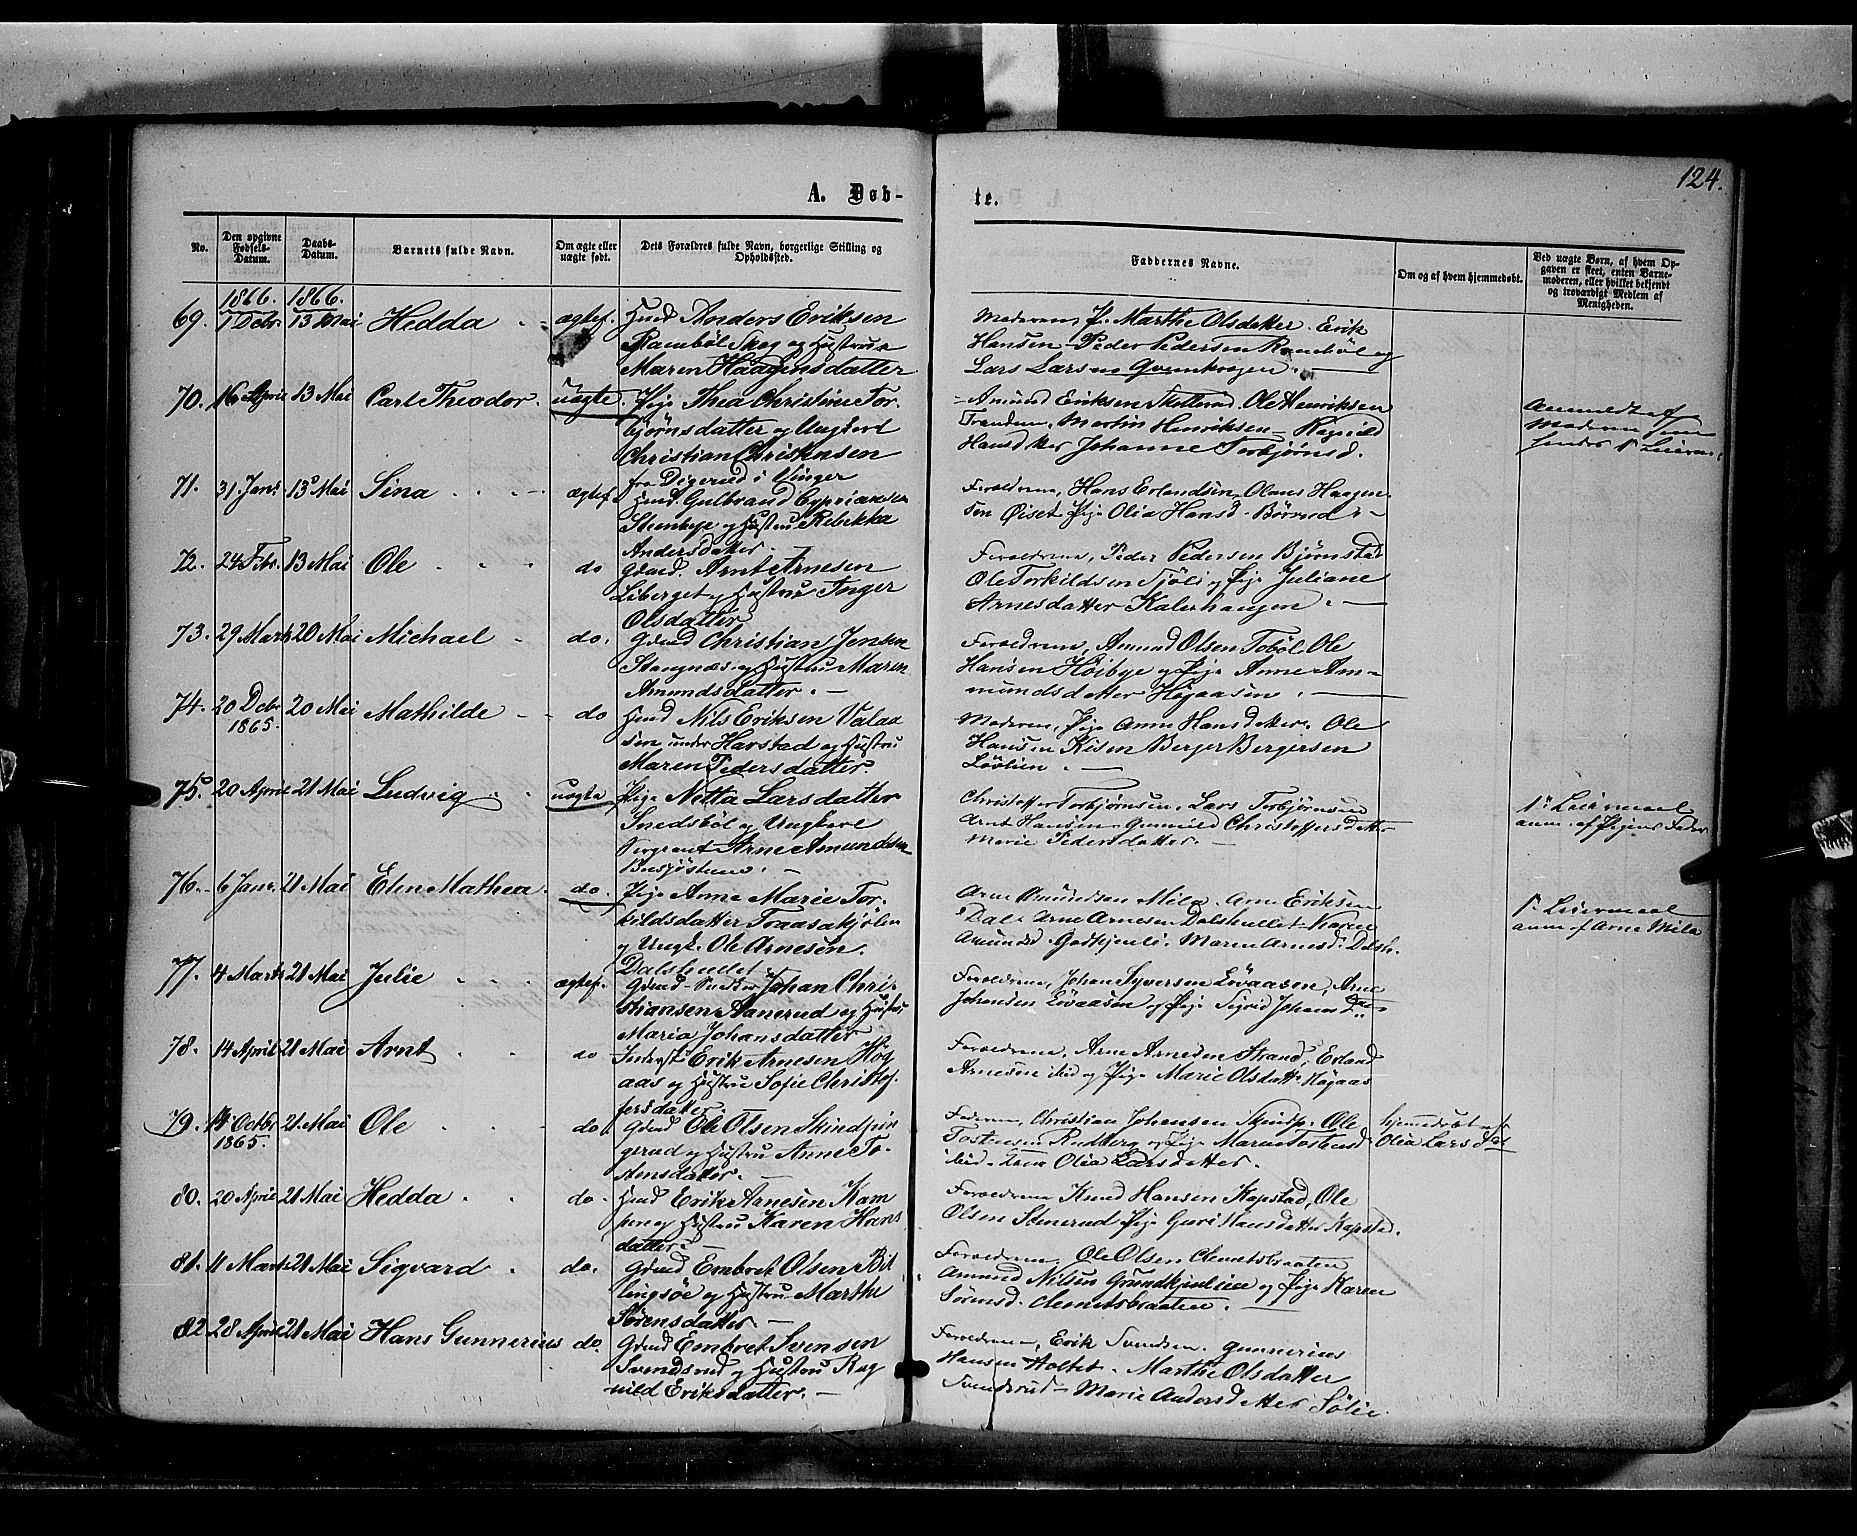 124.
A. Døb-
te.
No.
Den opgivne Fødsels-Datum.
Daabs-Datum.
Barnets fulde Navn.
Om ægte eller uægte født.
Dets Forældres fulde Navn, borgerlige Stilling og Opholdssted.
Faddernes Navne.
Om og af hvem hjemmedøbt.
Ved uægte Børn, af hvem Opgaven er skeet, enten Barnemoderen, eller hvilket bekjendt og troværdigt Medlem af Menigheden.
1866. 1866.
69. 7 Debr. 13 Mai Hedda ægtef. Huusd Anders Eriksen
Rambøl Skog og Hustru
Maren Haagensdatter
Moderen, P. Marthe Olsdatter. Erik
Hansen Peder Pedersen Rambøl og
Lars Larsen
70. 16 April 13 Mai Carl Theodor. uægte. Pige Thea Christine Tor-
bjørnsdatter og Ungkarl
Christian Christensen
fra Digerud i Vinger
Amund Eriksen Ole Henriksen
Martin Henriksen - Ragnild
Hansdtter Johanne Torbjørnsd.
Anmeldt af
Moderen som
71. 31 Janr. 13 Mai Sina ægtef. Gulbrand Cyprians
og Hustru Rebekka
Andersdatter.
Forældrene, Hans Erlandsen, Olaus Haagen-
sen Øiset Pige Olia Hansd.
72. 24 Febr. 13 Mai Ole do Gaard. Arnt Arnesen
Liberget og Hustru Inger
Olsdatter
Forældrene, Peder Pedersen Bjørnstad
Ole Torkildsen og Pige Juliane
Arnesdatter
73. 29 Marts 20 Mai Michael do. Gaard Christian Jensen
Stangnæs og Hustru Maren
Amundsdatter.
Forældrene, Amund Olsen Tobøl, Ole
Hansen Høibye og Pige Anne Am-
mundsdatter Høgaasen
74. 20 Debr 1865. 20 Mai Mathilde do Nils Eriksen Valaa
sen under Harstad og Hustru
Maren Pedersdatter.
Moderen, Pige Anne Hansdatter. Ole
Hansen Kisen Berger Bergersen
75. 20 April 21 Mai Ludvig uægte Pige Netta Larsdatter
Snedsbøl og Ungkarl
Sergeant Arne Amundsen
Christoffer Torbjørnsen, Lars Torbjørnsen
Arnt Hansen Gunnild Christoffersdatter
Marie Pedersdatter.
1ste Leiermaal
anm. af Pigens Fader
76. 6 Janr. 21 Mai Elen Mathea. do. Pige Anne Marie Tor-
kildsdatter Traasakjølen
og Ungk. Ole Arnesen.
Dalshullet
Arne Amundsen Mila. Arne Eriksen
Dal Arne Arnesen Dalshullet Karen
Amundsd. Maren Arnesd. Dalsh.
1ste Leiermaal
anm. af Arne Mila
77. 4 Marts 21 Mai Julie ægtef. Gaard- Johan Chri-
stiansen Aanerud og Hustru
Maria Johansdatter
Forældrene, Johan Syversen Løvaasen, Arne
Johansen Løvaasen og Pige Sigrid Johansd
78. 14 April 21 Mai Arnt do Inderst Erik Arnesen Høg
aas og Hustru Sofie Christof-
fersdatter.
Forældrene, Arne Arnesen Strand, Erland
Arnesen ibid og Pige Marie Olsdatt. Høgaas
79. 14 Octbr 1865. 21 Mai Ole do Gaard Ole Olsen Skindpun
gerud og Hustru Anne To-
stensdatter.
Faderen, Christian Johansen Skindp. Ole
Tostensen Rudberg og Pige Maren Tostensd
ibid. Kone Olia Larsdatter.
hjemmedøbt af
Olia Larsdat
80. 20 April 21 Mai Hedda do. Huusd Erik Arnesen Kam
pen og Hustru Karen Hans
datter.
Forældrene Knud Hansen Kapstad, Ole
Olsen Stenerud Pige Guri Hansdatter Kapstad.
81. 11 Marts 21 Mai Sigvard do. Gaard Embret Olsen Bil
lingsøe og Hustru Marthe
Sørensdatter.
Forældrene, Ole Olsen Clemetsbraaten
Amund Nilsen og Pige Karen
Sørensd. Clemetsbraaten.
82 28 April 21 Mai Hans Gunnerius do. Gaard Embret Svensen
Svendsrud og Hustru Rag
nild Eriksdatter.
Forældrene, Erik Svendsen. Gunnerius
Hansen Holtet. Marthe Olsdatter
Svendsrud Marie Andersdatter Sølie.